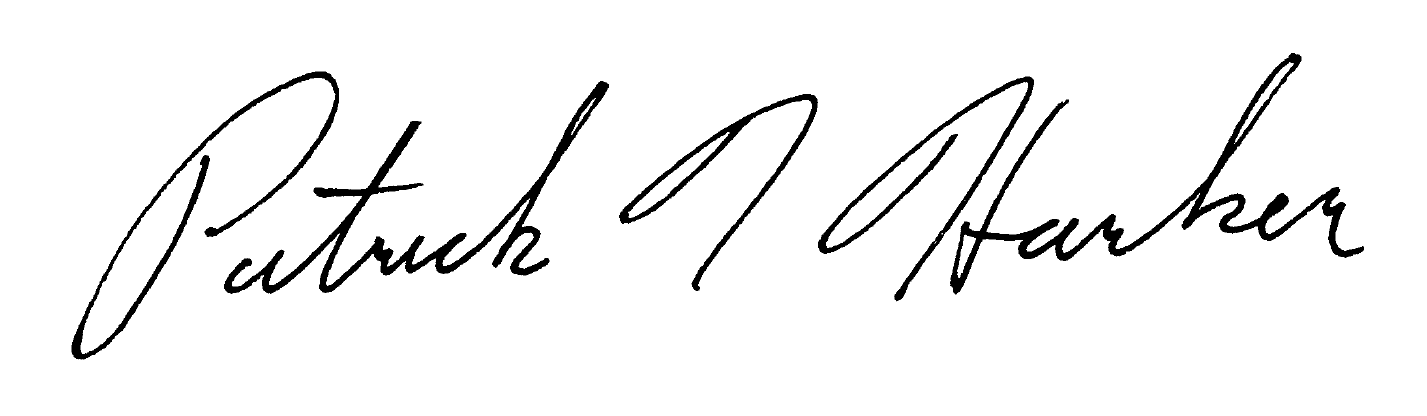 Patrick T Harker